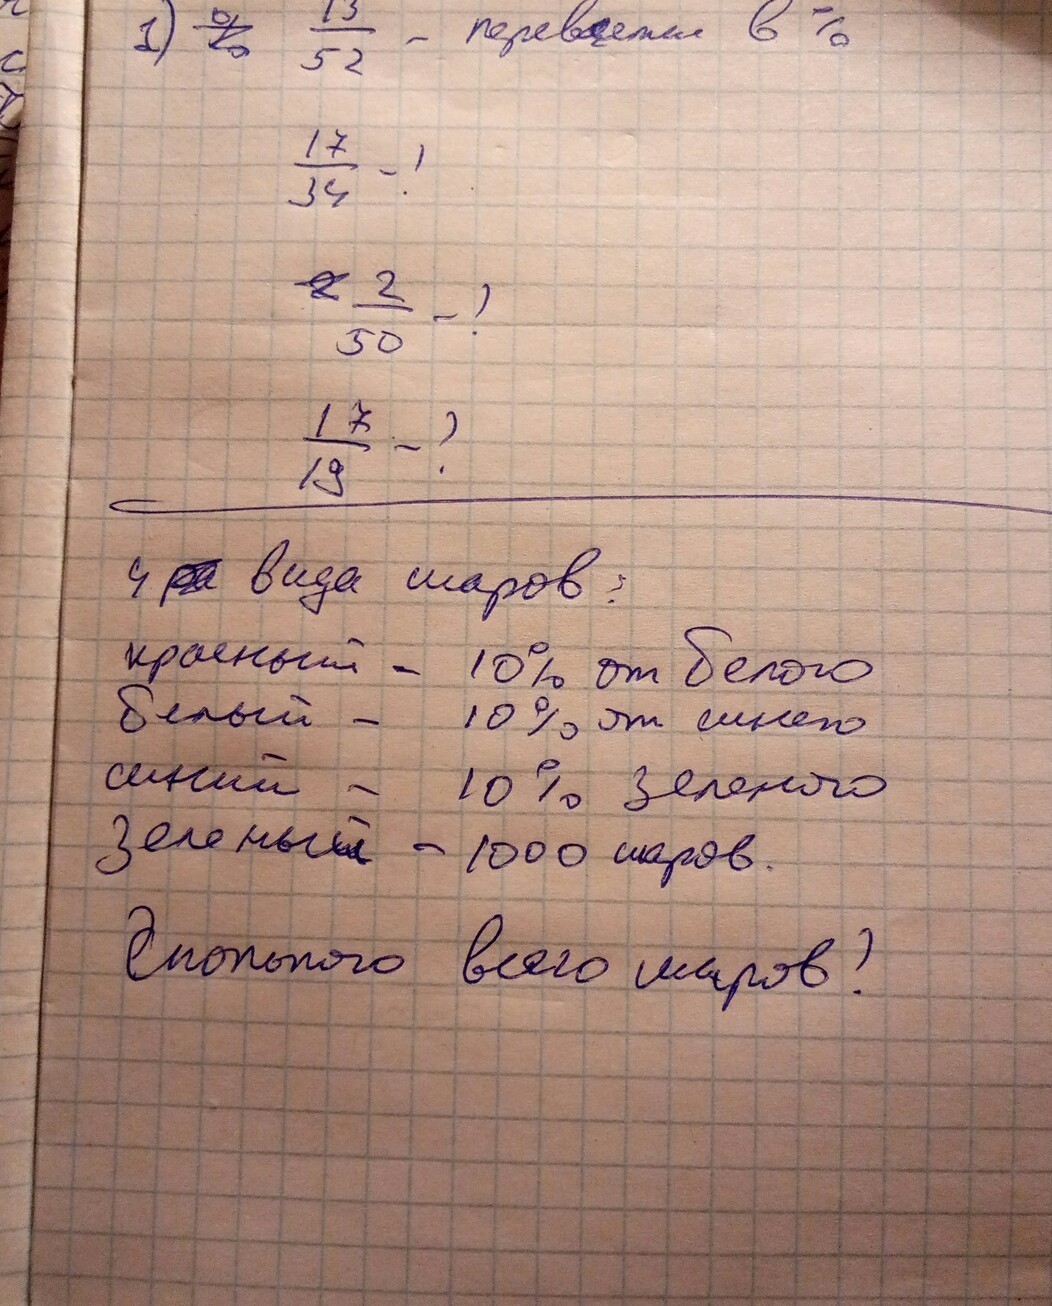 1) 13/52 - перевести в %
17/34 - ?
2/50 - ?
17/19 - ?
4 вида шаров:
красный - 10% от белого
белый - 10% от синего
синий - 10% зеленого
зеленый - 1000 шаров.
Сколького всего шаров?